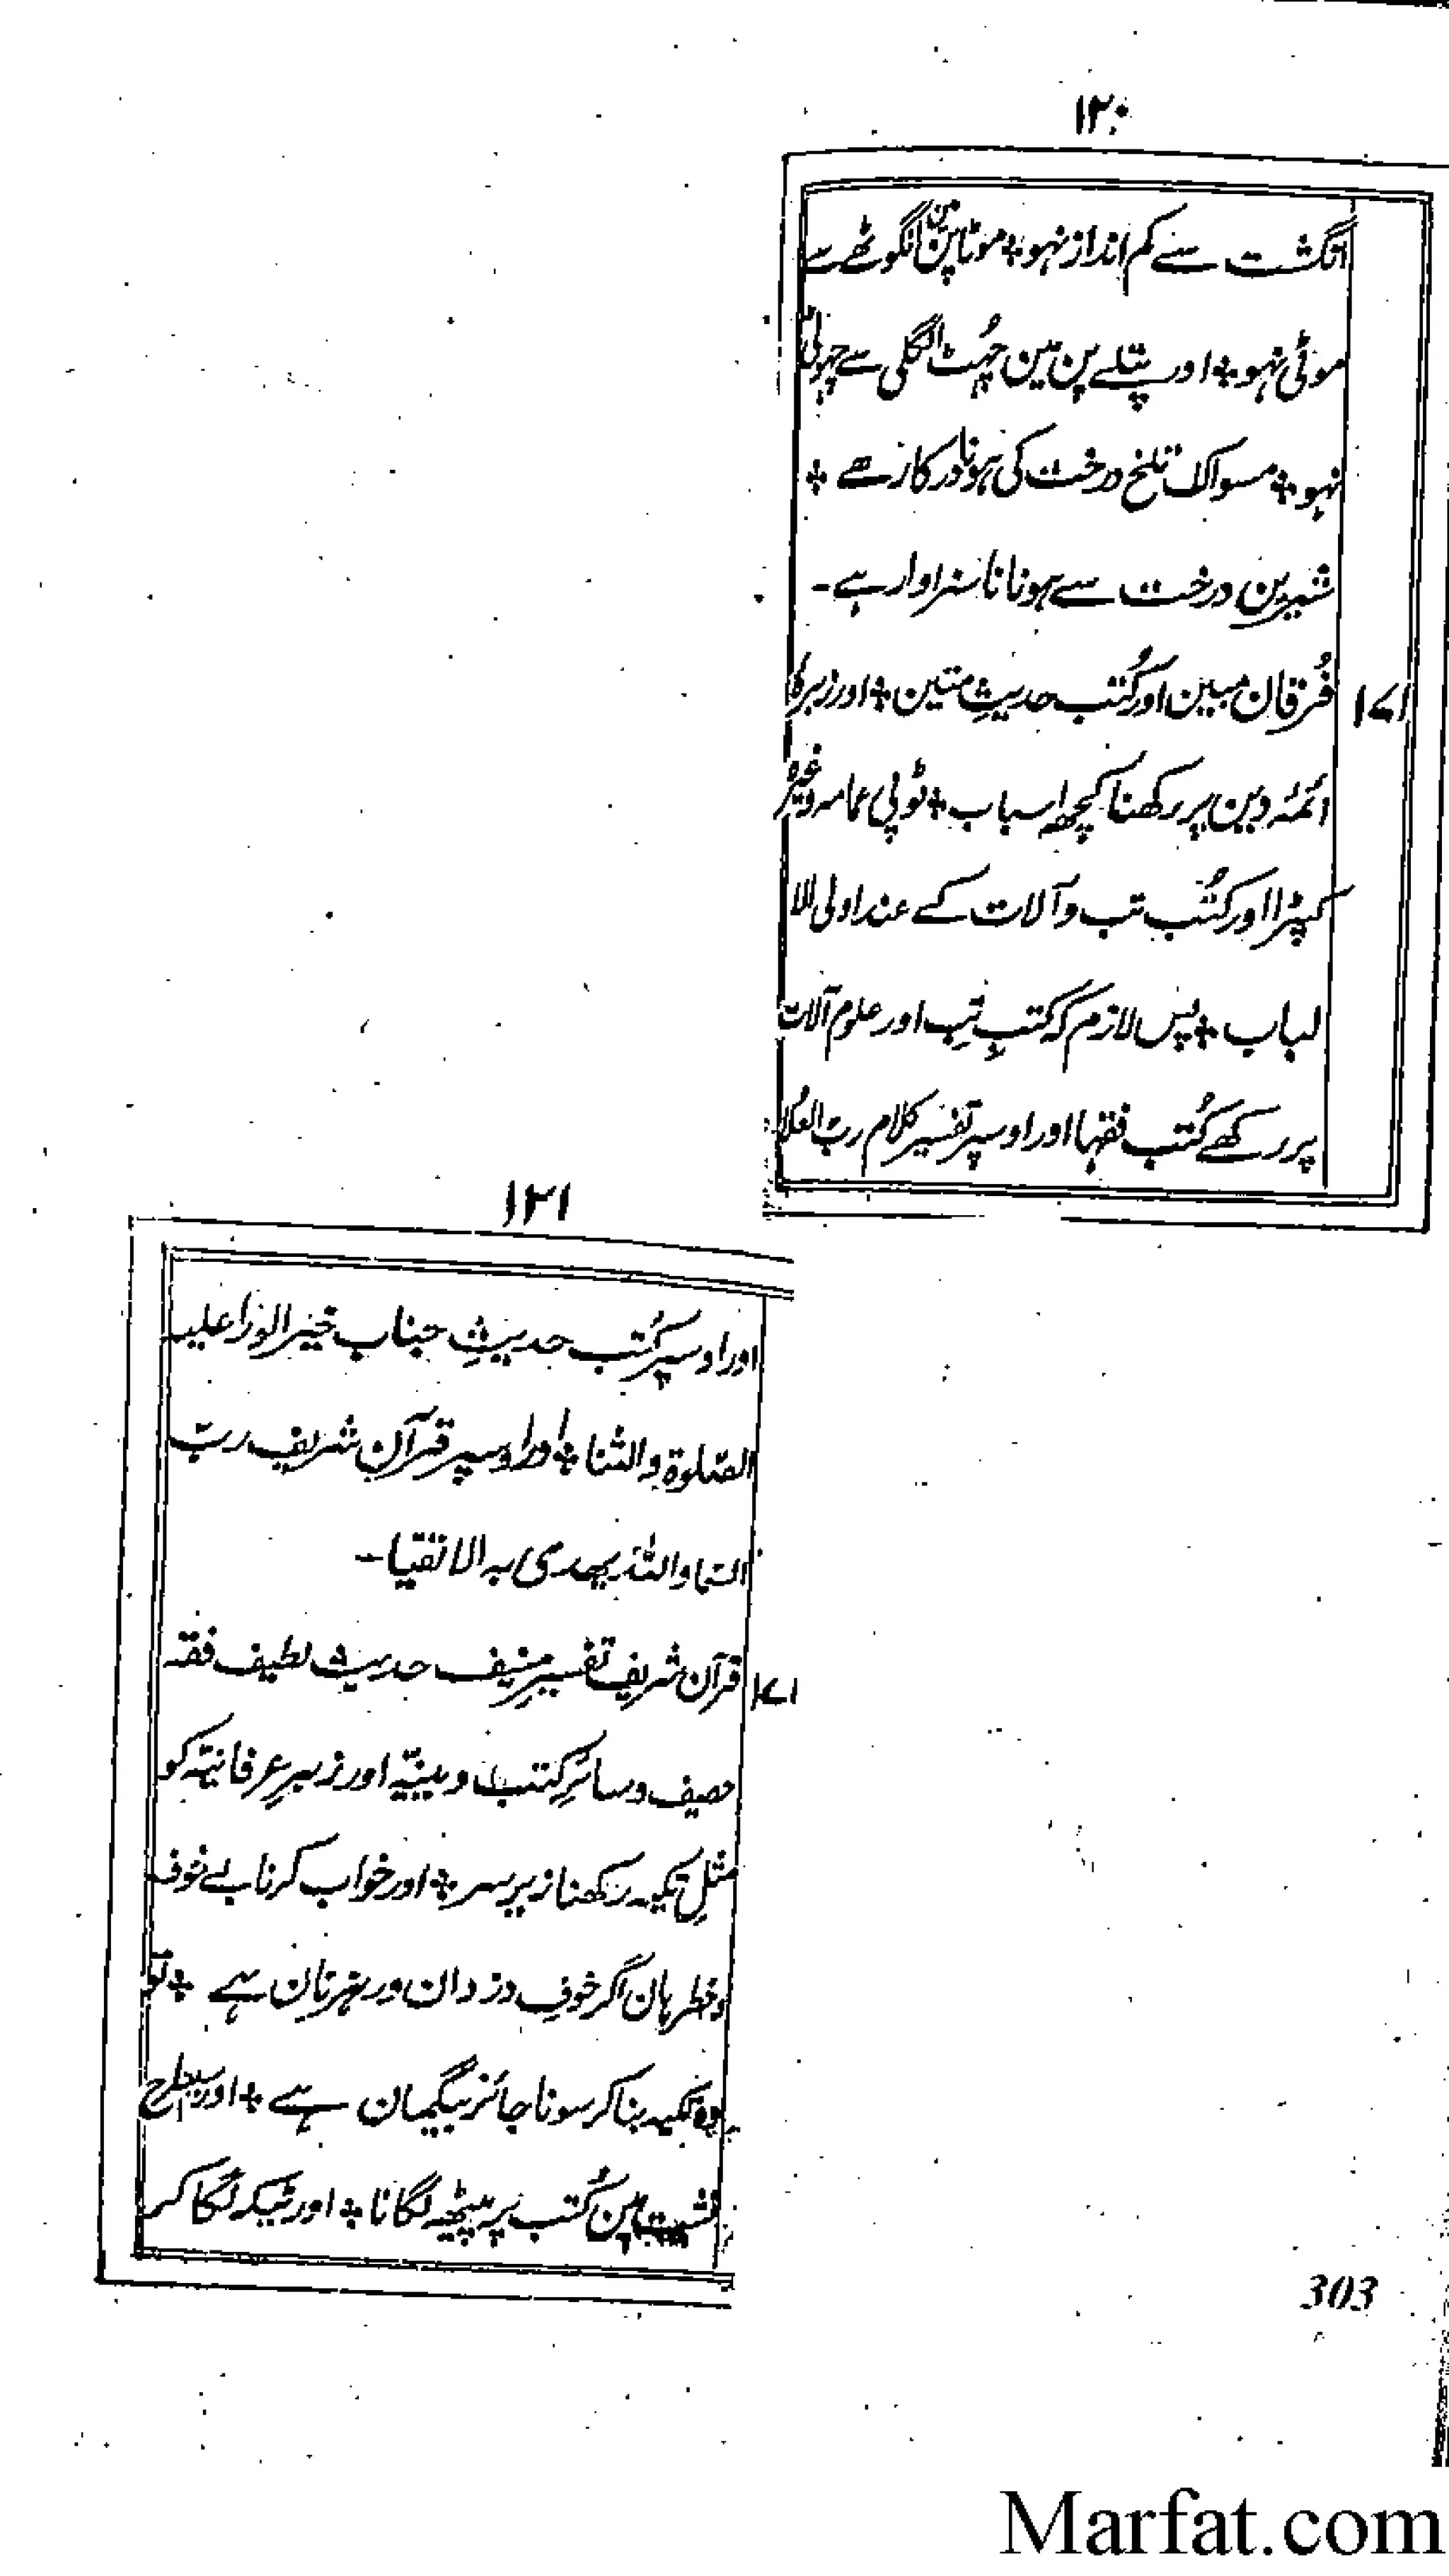 ۱۲۰
انگشت سے کم انداز نہو ؞ موٹاپن مین انگوٹھے سے
موٹی نہو ؞ اور پتلے پن مین چہٹ انگلی سے چہوٹی
نہو ؞ مسواک تلخ درخت کی ہونا درکار ہے ؞
شیرین درخت سے ہونا نا سزاوار ہے ۔
۱۷۱ فُرقان مبین اور کُتب حدیثِ متین ؞ اور زبر کا
ائمۂ دین پر رکھنا کچھہ اسباب ؞ ٹوپی عمامہ وغیرہ
کپڑا اور کتُب تب و آلات کے عند اولی الا
لباب ؞ پس لازم کہ کتبِ تِب اور علوم آلات
پر رکھے کُتب فقہا اور اوسپر تفسیر کلام ربّ العُلا
۱۲۱
اور اوسپر کُتب حدیثِ جناب خیر الورٰا علیہ
الصّلوۃ والثنا ؞ اور اوسپر قرآن شریف ربّ
السّما واللہ یھدی بہ الاتقیا ۔
۱۷۱ قرآن شریف تفسیرِ منیف حدیث لطیف فقہ
حصیف و سائرِ کتب دینیّہ اور زبرِ عرفانیّہ کو
مثلِ تکیہ رکھنا زیرِ سر ؞ اور خواب کرنا بے خوف
و خطر ہان اگر خوفِ دزدان و رہزنان ہے ؞ تو
وہ تکیہ بناکر سونا جائز بیگمان ہے ؞ اور اسیطرح
نشست مین کُتب پر پیٹھہ لگانا ؞ اور ٹیکہ لگا کر
303
Marfat.com